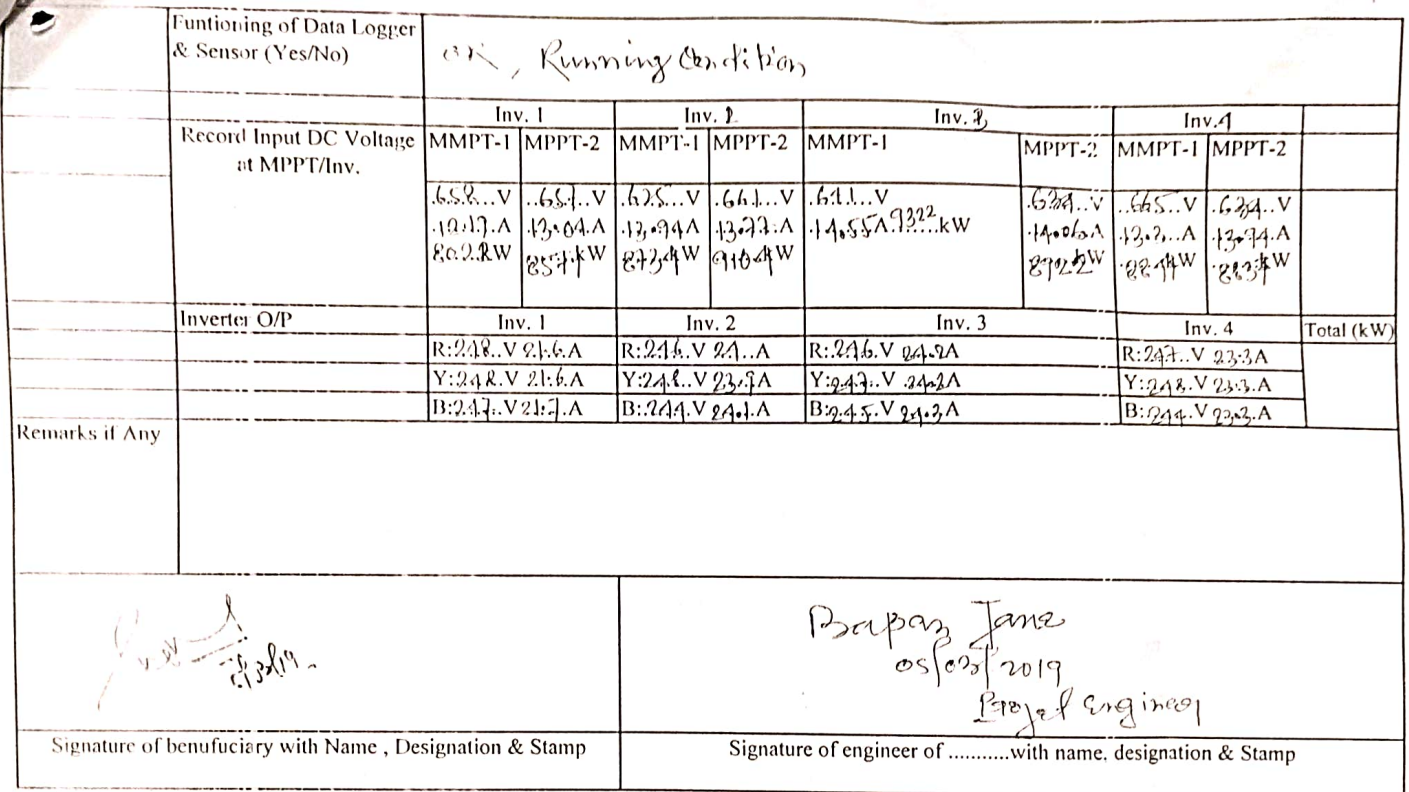 Funtioning of Data Logger
& Sensor (Yes/No)
OK, Running Condition
Inv. 1 Inv. 2 Inv. 3 Inv. 4
Record Input DC Voltage
at MPPT/Inv.
MMPT-1 MPPT-2 MMPT-1 MPPT-2 MMPT-1 MPPT-2 MMPT-1 MPPT-2
658 V 657 V 625 V 661 V 611 V 634 V 665 V 634 V
A 13.04 A 13.94 A 13.77 A 14.55 A 9322 kW 14.06 A A 13.94 A
kW kW kW kW kW kW kW
Inverter O/P Inv. 1 Inv. 2 Inv. 3 Inv. 4 Total (kW)
R: 248 V 21.6 A R: 246 V 24 A R: 246 V 24.2 A R: 247 V 23.3 A
Y: 248 V 21.6 A Y: 248 V 23.9 A Y: 247 V 24.2 A Y: 248 V 23.3 A
B: 247 V 21.7 A B: 244 V 24.1 A B: 245 V 24.3 A B: 244 V 23.3 A
Remarks if Any
Jana
05/03/2019
Engineer
Signature of benufuciary with Name , Designation & Stamp
Signature of engineer of ...........with name, designation & Stamp